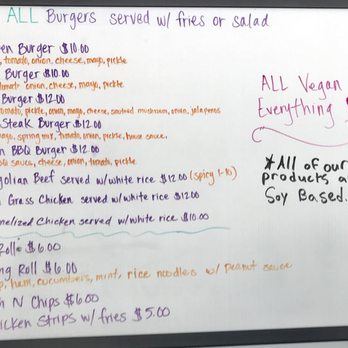 ALL Burgers served w/ fries or salad
Burger $10.00
tomato, onion, cheese, mayo, pickle
Burger $10.00
tomato onion, cheese, mayo, pickle
Burger $12.00
tomato, pickle, onion, mayo, cheese, sauteed mushroom, onion, jalapenos
Steak Burger $12.00
mayo, spring mix, tomato, onion, pickle, house sauce.
BBQ Burger $12.00
sauce, cheese, onion, tomato, pickle
Beef served w/white rice $12.00 (spicy 1-10)
Grass Chicken served w/white rice $12.00
Chicken served w/white rice $10.00
Roll $6.00
Roll $6.00
ham, cucumbers, mint, rice noodles w/ peanut sauce
N Chips $6.00
Strips w/ fries $5.00
ALL Vegan
Everything
*All of our
products a
Soy Based.